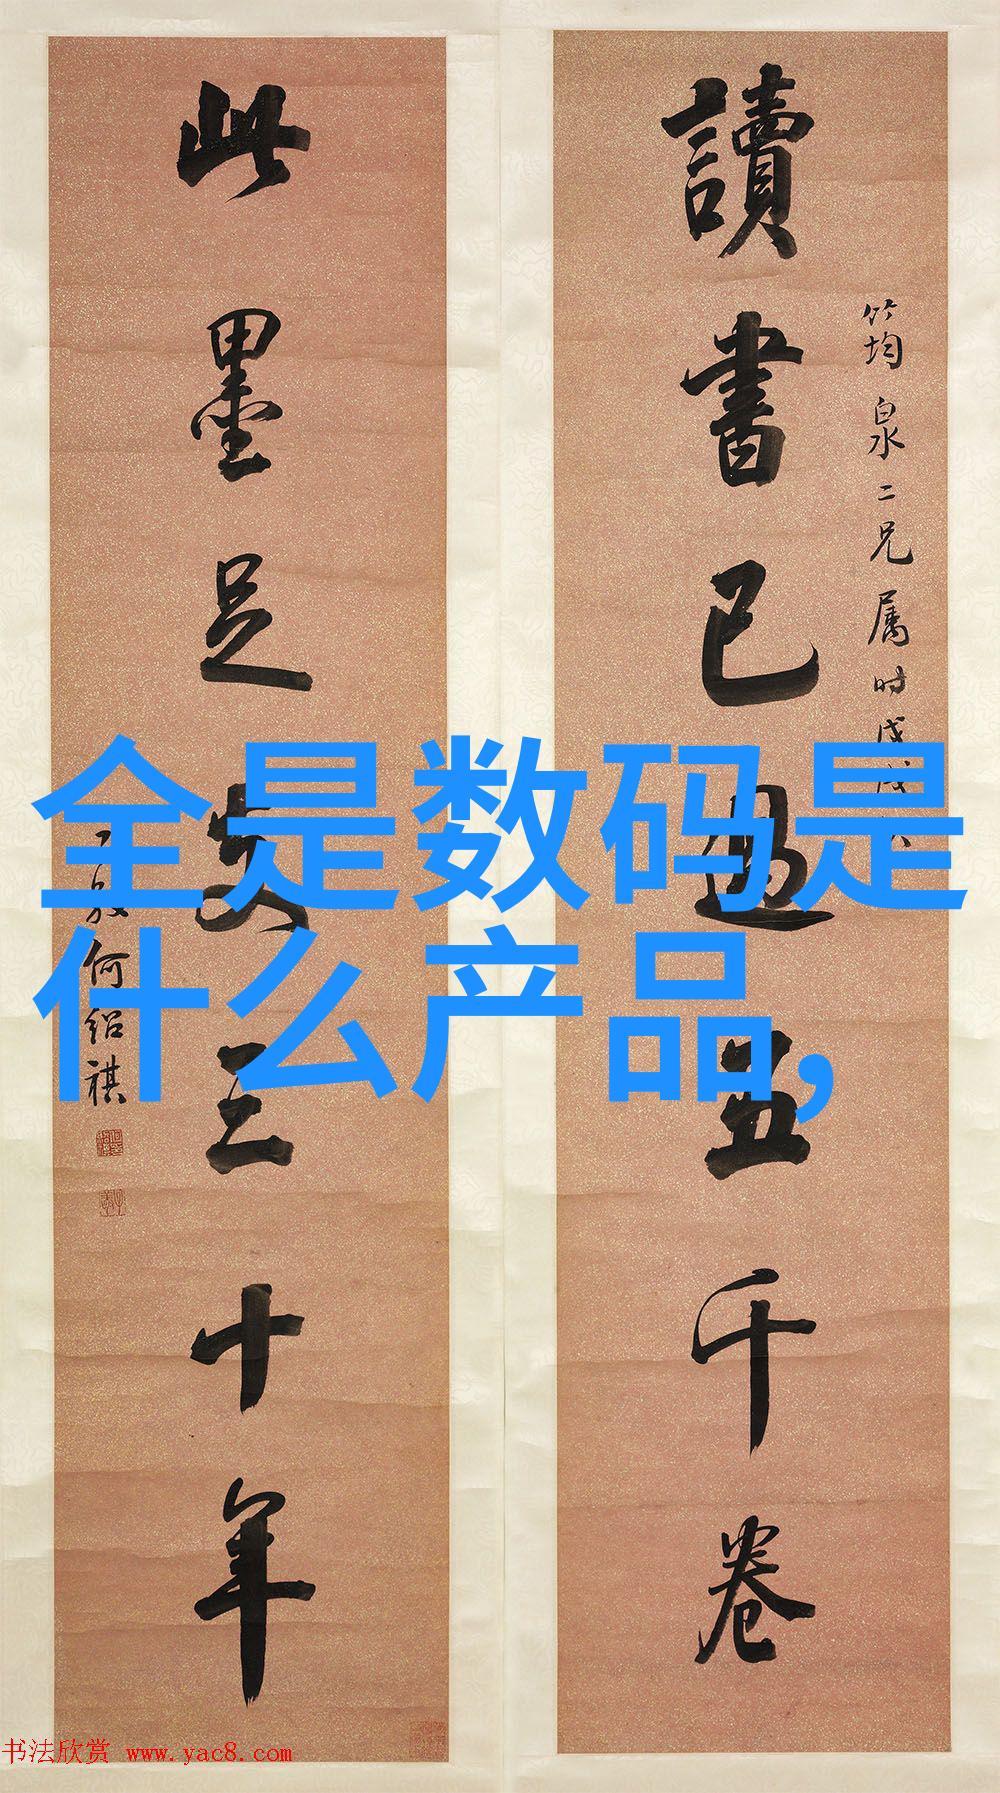 讀書已過五千卷
竹均泉二兄属时戊戌
此墨足支三十年
何绍祺
全是数码是
什么产品,
书法欣赏 www.yac8.com